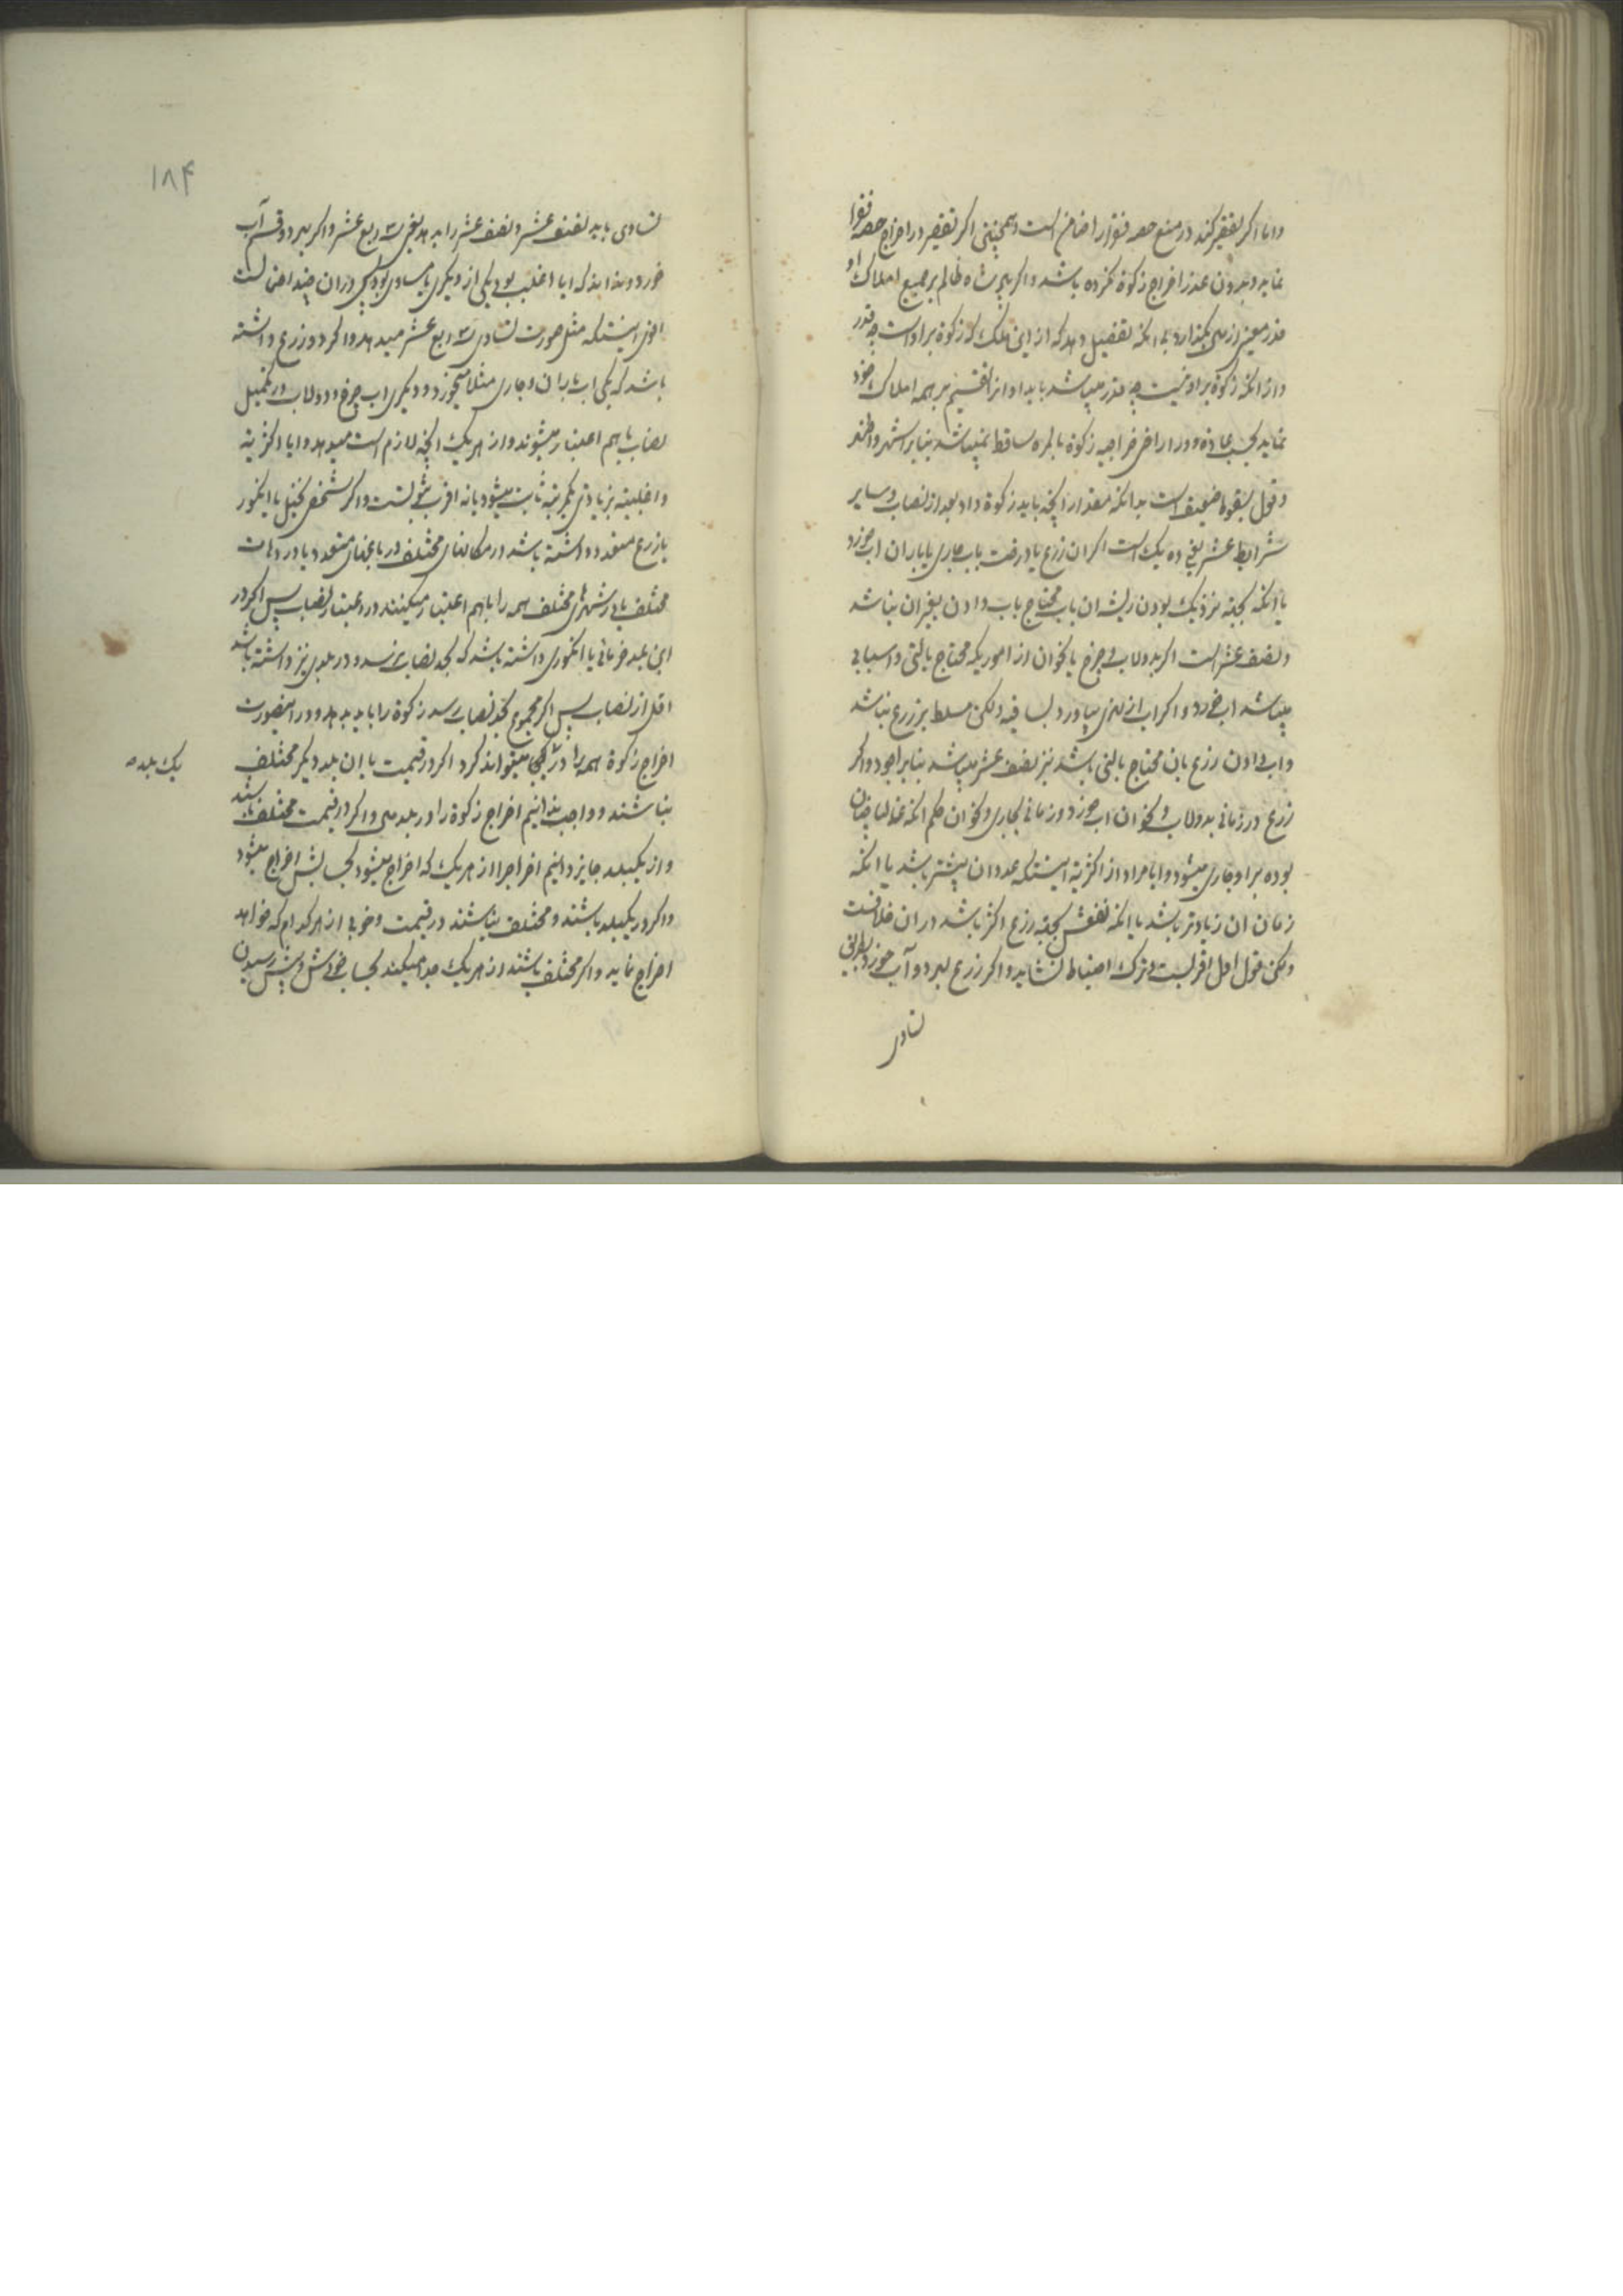 واما اگر تقصیر کند در منع حصه فقرا ضامن است و همچنین اگر تقصیر در اخراج حصه فقرا
نماید و بدون عذر اخراج زکوة نکرده باشد و اگر پادشاه ظالم بر جمیع املاک او
قدر معینی از میگذارد بی آنکه تفصیل دهد که از این ملک که زکوة بر او است چه قدر
و از آنکه زکوة بر او نیست چه قدر میباشد باید او انرا تقسیم بر همه املاک خود
نماید بحسب عاده و در اراضی خراجیه زکوة بالمره ساقط نمیباشد بنابر اشهر و اظهر
و قول بسقوط ضعیف است بدانکه مقدار آنچه باید زکوة داد بعد از نصاب و سایر
شرایط عشر یعنی ده یک است اگر ان زرع یا درخت باب جاری یا باران اب خورد
یا آنکه بجهة نزدیک بودن ریشه ان باب محتاج باب دادن بغیر ان نباشد
و نصف عشر است اگر بدولاب و چرخ یا نحو ان از اموریکه محتاج بالتی و اسبابی
میباشد اب خورد و اگر اب از نهری بیاورد بساقیه ولکن مسلط بر زرع نباشد
و اب دادن زرع بان محتاج بالتی باشد نیز نصف عشر میباشد بنابر اجود و اگر
زرع در زمانی بدولاب و نحو ان اب خورد و زمانی بجاری و نحو ان حکم آنکه غالبا چنان
بوده بر او جاری میشود و ایا مراد از اکثریة اینستکه عدد ان بیشتر باشد یا آنکه
زمان ان زیادتر باشد یا آنکه نفعش بجهة زرع اکثر باشد در ان خلافست
ولکن قول اول اقربست و ترک احتیاط نشاید و اگر زرع بهر دو آب خورد بطریق
تساوی
۱۸۴
تساوی باید نصف عشر و نصف عشر را بدهد یعنی سه ربع عشر و اگر بهر دو قسم آب
خورد و نداند که ایا اغلب بوده یکی از دیگری یا مساوی بوده پس در ان چند احتمالست
اقوی اینستکه مثل صورت تساوی سه ربع عشر میدهد و اگر دو زرع داشته
باشد که یکی اب باران و جاری مثلا میخورد و دیگری اب چرخ و دولاب در تکمیل
نصاب باهم اعتبار میشوند و از هر یک آنچه لازم است میدهد و ایا اکثریة
و اغلبیة بزیادتی یکمرتبه ثابت میشود یا نه اقرب ثبوتست و اگر شخص نخیل یا انگور
یا زرع متعدد داشته باشد در مکانهای مختلف در باغهای متعدد یا در دهات
مختلف یا در شهرهای مختلف همه را باهم اعتبار میکنند در اعتبار نصاب پس اگر در
این بلد خرمائی یا انگوری داشته باشد که بحد نصاب نرسد و در بلدی نیز داشته باشد
اقل از نصاب پس اگر مجموع بحد نصاب رسد زکوة را باید بدهد و در اینصورت
اخراج زکوة همه را در یکی میتواند کرد اگر در قیمت با ان بلد دیگر مختلف
نباشند و واجب ندانیم اخراج زکوة را در بلدش و اگر در قیمت مختلف باشند
و از یکبلد جایز دانیم اخراج را از هر یک که اخراج میشود بحسابش اخراج میشود
و اگر در یکبلد باشند و مختلف نباشند در قیمت و خوبی از هر کدام که خواهد
اخراج نماید و اگر مختلف باشند از هر یک جدا میکند بحساب خودش و پیش رسیدن
یک بلد